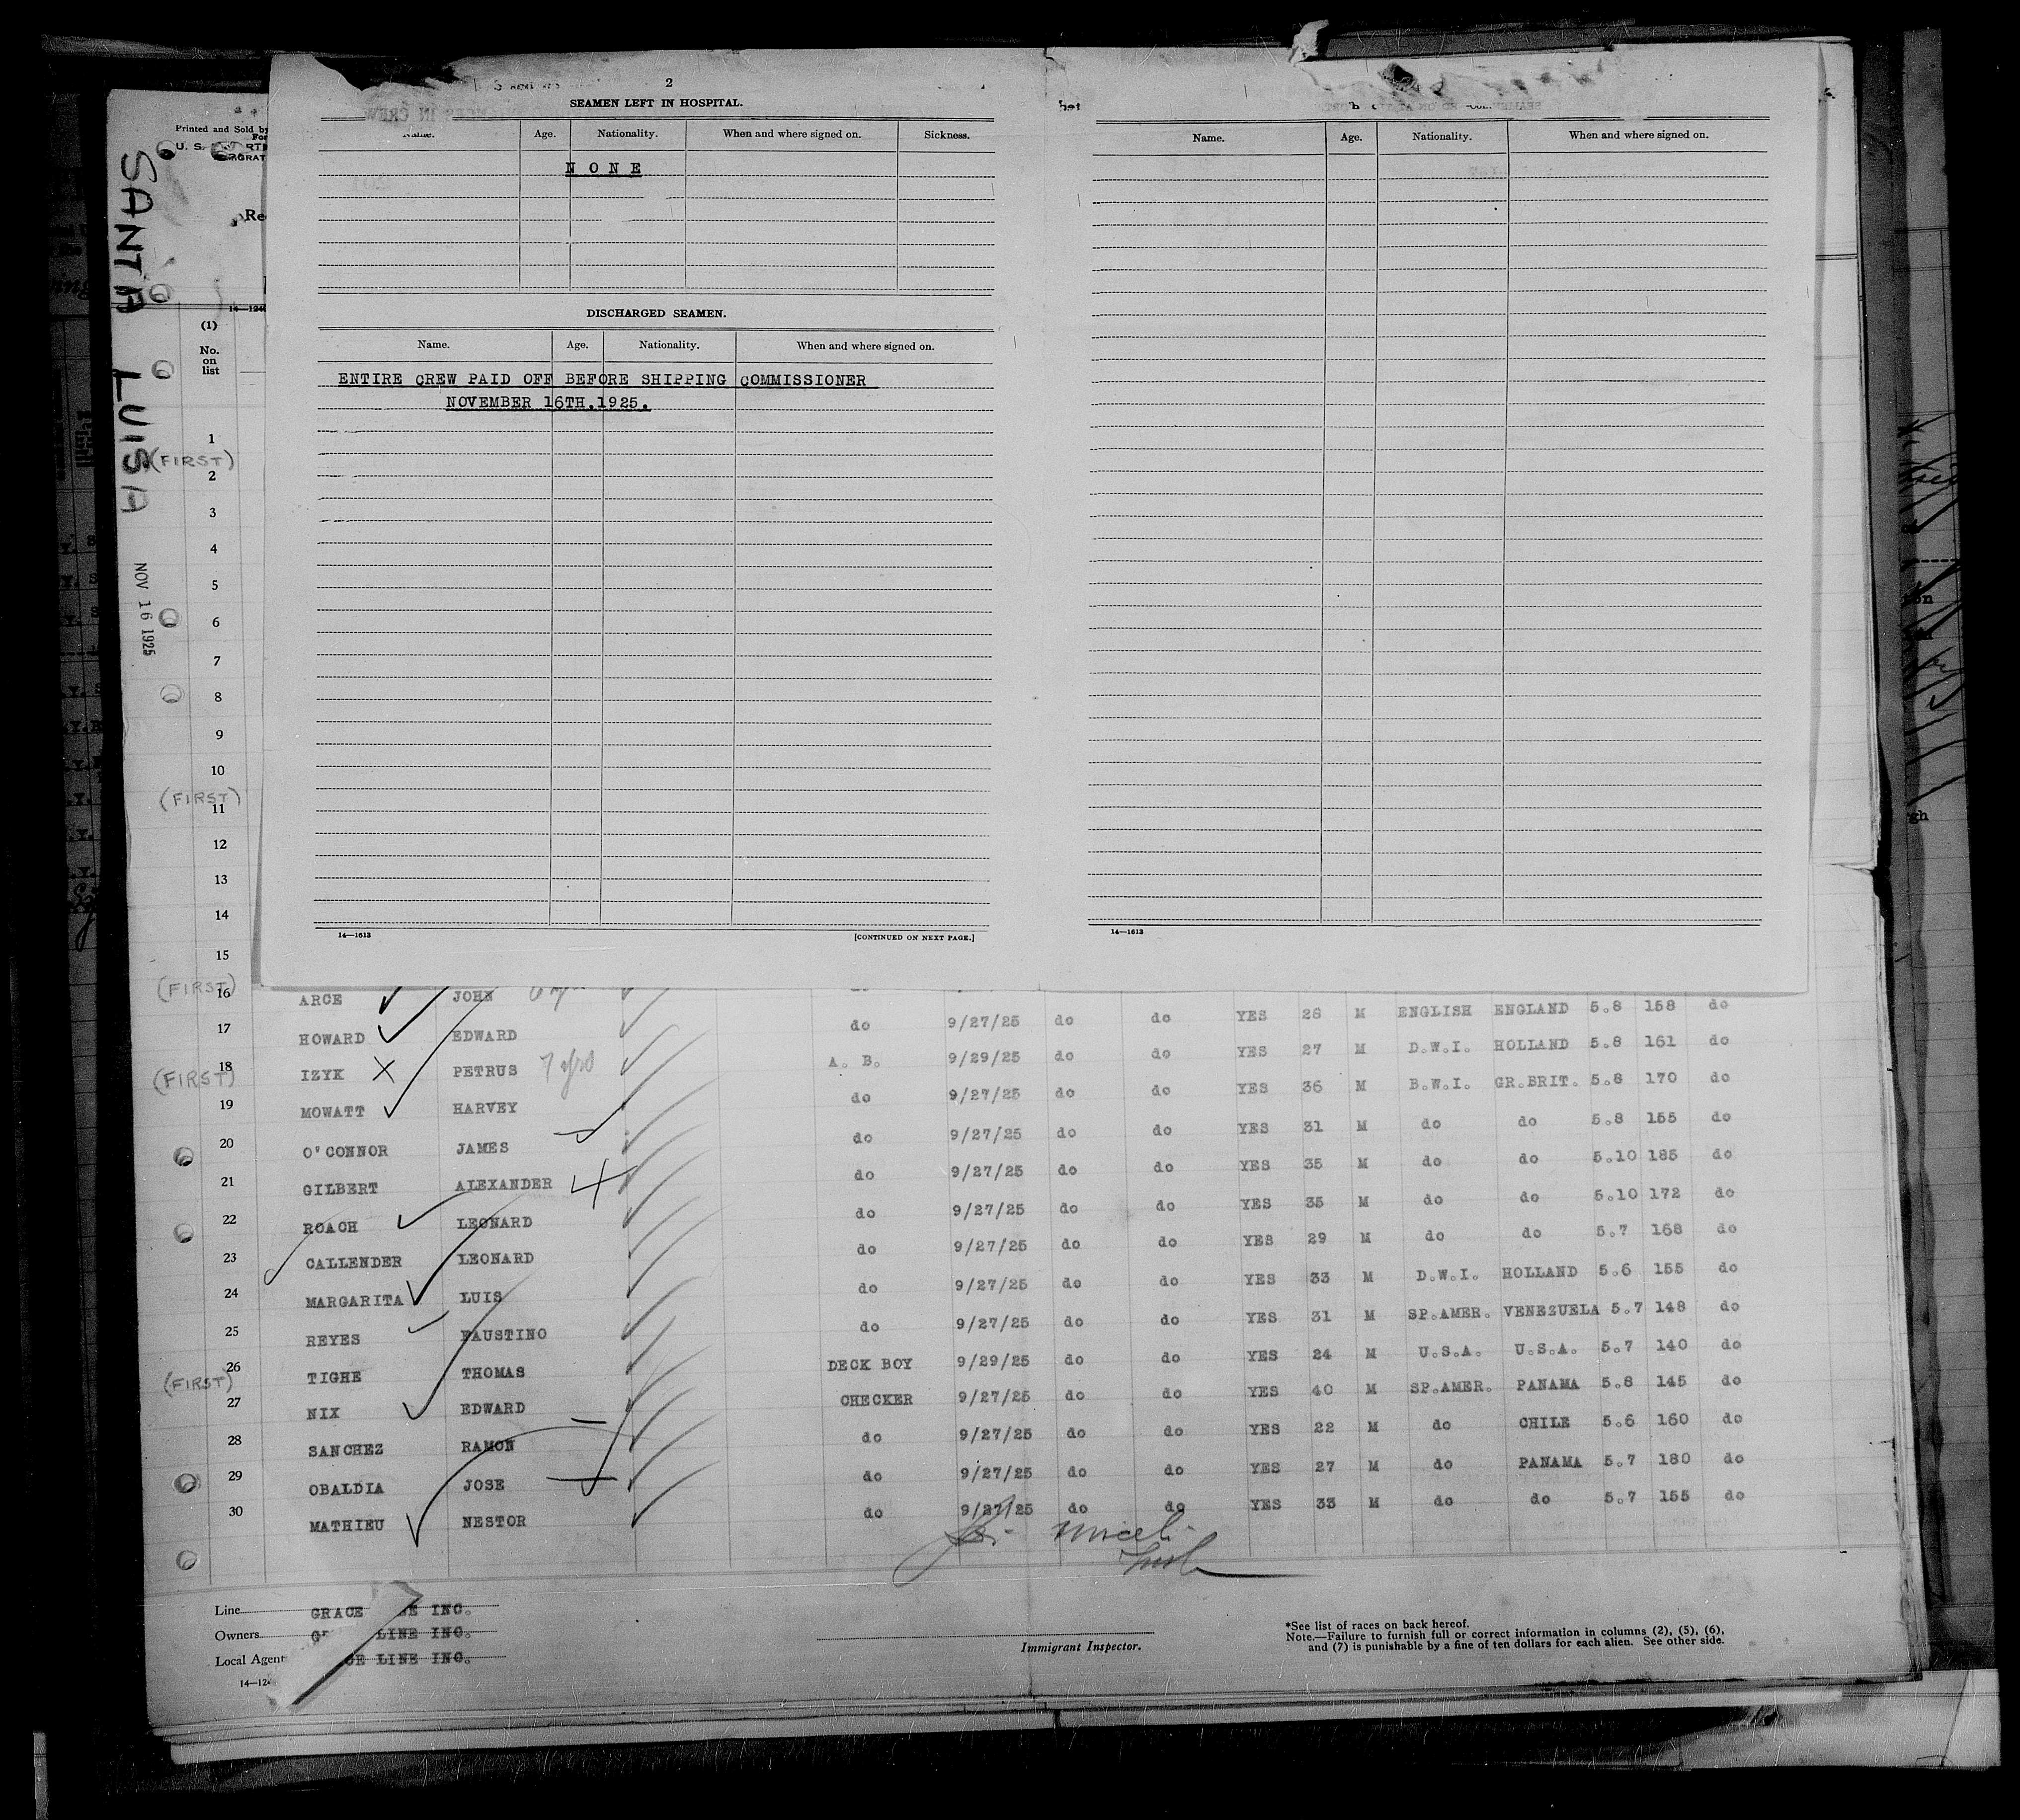 SANTA LUISA
NOV 16 1925
Printed and Sold by
U. S.
Re
14—1240
(1)
No.
on
list
2
SEAMEN LEFT IN HOSPITAL.
Name. Age. Nationality. When and where signed on. Sickness.
NONE
DISCHARGED SEAMEN.
Name. Age. Nationality. When and where signed on.
ENTIRE CREW PAID OFF BEFORE SHIPPING COMMISSIONER
NOVEMBER 16TH.1925.
14—1613 [CONTINUED ON NEXT PAGE.]
Name. Age. Nationality. When and where signed on.
14—1613
1
(FIRST)
2
3
4
5
6
7
8
9
10
(FIRST)
11
12
13
14
15
(FIRST) 16 ARCE JOHN
17 HOWARD EDWARD do 9/27/25 do do YES 26 M ENGLISH ENGLAND 5.8 158 do
(FIRST) 18 IZYK PETRUS 7 yrs A. B. 9/29/25 do do YES 27 M D.W.I. HOLLAND 5.8 161 do
19 MOWATT HARVEY do 9/27/25 do do YES 36 M B.W.I. GR.BRIT. 5.8 170 do
20 O'CONNOR JAMES do 9/27/25 do do YES 31 M do do 5.8 155 do
21 GILBERT ALEXANDER do 9/27/25 do do YES 35 M do do 5.10 185 do
22 ROACH LEONARD do 9/27/25 do do YES 35 M do do 5.10 172 do
23 CALLENDER LEONARD do 9/27/25 do do YES 29 M do do 5.7 168 do
24 MARGARITA LUIS do 9/27/25 do do YES 33 M D.W.I. HOLLAND 5.6 155 do
25 REYES FAUSTINO do 9/27/25 do do YES 31 M SP.AMER. VENEZUELA 5.7 148 do
(FIRST) 26 TIGHE THOMAS DECK BOY 9/29/25 do do YES 24 M U.S.A. U.S.A. 5.7 140 do
27 NIX EDWARD CHECKER 9/27/25 do do YES 40 M SP.AMER. PANAMA 5.8 145 do
28 SANCHEZ RAMON do 9/27/25 do do YES 22 M do CHILE 5.6 160 do
29 OBALDIA JOSE do 9/27/25 do do YES 27 M do PANAMA 5.7 180 do
30 MATHIEU NESTOR do 9/27/25 do do YES 33 M do do 5.7 155 do
Line GRACE INC.
Owners LINE INC.
Local Agent LINE INC.
Immigrant Inspector.
*See list of races on back hereof.
Note.—Failure to furnish full or correct information in columns (2), (5), (6),
and (7) is punishable by a fine of ten dollars for each alien. See other side.